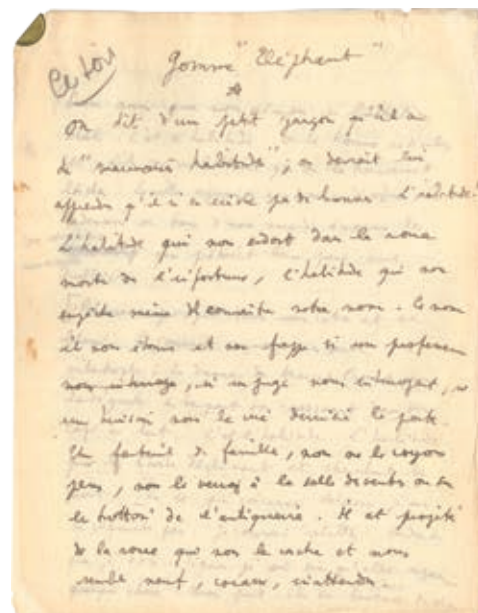 Ce soir
Gomme "Eléphant"
On dit d'un petit garçon qu'il a
de "mauvaises habitudes"; on devrait lui
apprendre qu'il n'en existe pas de bonnes. L'habitude!
L'habitude qui nous endort dans la zone
morte de l'inforтune, l'habitude qui nous
empêche même de connaître notre nom. Ce nom
il nous étonne et nous frappe si un professeur
nous interroge, si un juge nous interroge, si
un huissier nous le crie derrière la porte.
Un fauteuil de famille, nous ne le voyons
plus, nous le verrons à la salle des ventes ou sur
le trottoir de l'antiquaire. Il est projeté
de la zone qui nous le cache et nous
semble neuf, cocasse, inattendu.